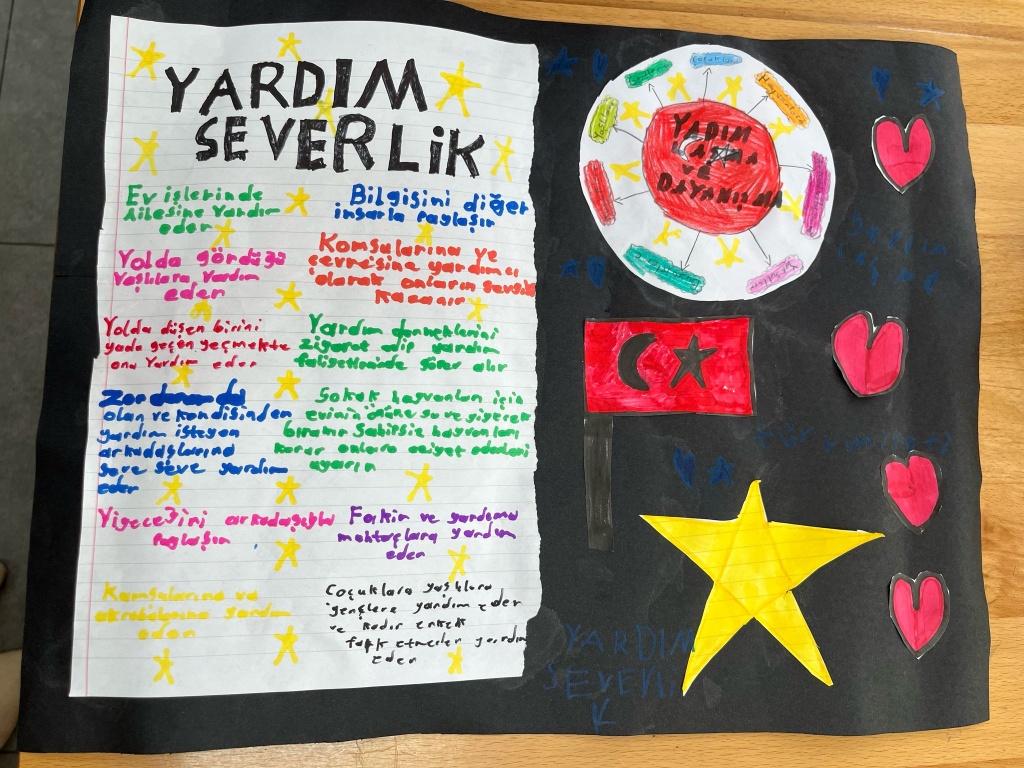 YARDIM
SEVERLiK
Ev işlerinde
Ailesine Yardır
eder
Bilgisini diğer
insarla paylaşır
Yolda gördüğü
Yaşlılara Yardım
eder
Komşularına ve
çevresine yardımcı
olarak onların sevgisi
kazanır
Yolda düşen birini
yada geçen geçmekte
ona Yardım eder
Yardım derneklerini
ziyaret dip yardım
görev alır
Zor
olan ve kendisinden
yardım isteyen
arkadaşlarına
seve seve yardım
eder
Sokak hayvanları için
evinin önüne su ve yiyecek
bırakır Sahipsiz hayvanları
korur onlara eziyet edenleri
uyarır
Yiyeceğini
paylaşır
Fakir ve yardıma
muhtaçlara yardım
eder
Komşularına ve
akrabalarına yardım
eder
Çocuklara yaşlılara
gençlere yardım eder
ve kadır erkek
fark etmeden yardım
eder
YADIM
LAŞMA
ve
DAYANIŞMA
YARDIM
SEVERLi
K